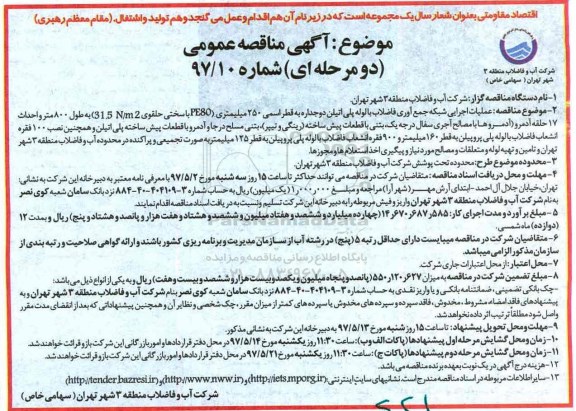 اقتصاد مقاومتی بعنوان شعار سال یک مجموعه است که در زیر نام آن هم اقدام و عمل می گنجد و هم تولید و اشتغال. (مقام معظم رهبری)
موضوع : آگهی مناقصه عمومی
(دو مرحله ای) شماره ۹۷/۱۰
شرکت آب و فاضلاب منطقه ۳
شهر تهران (سهامی خاص)
۱- نام دستگاه مناقصه گزار: شرکت آب و فاضلاب منطقه ۳ شهر تهران.
۲- موضوع مناقصه: عملیات اجرایی شبکه جمع آوری فاضلاب با لوله پلی اتیلن دوجداره به قطر اسمی ۲۵۰ میلیمتری (PE80 با سختی حلقوی 31.5 N/m2) به طول ۸۰۰ متر و احداث
۱۷ حلقه آدمرو (آدمروها با مصالح آجری سفال درجه یک، بتنی با قطعات پیش ساخته (رینگی و تیپر)، بتنی مسلح درجا و آدمرو با قطعات پیش ساخته پلی اتیلن و همچنین نصب ۱۰۰ فقره
انشعاب فاضلاب با لوله پلی پروپیلن به قطر ۱۶۰ میلیمتر و ۹۰۰ فقره انشعاب فاضلاب با لوله پلی پروپیلن به قطر ۱۲۵ میلیمتر به صورت تجمیعی و پراکنده در محدوده آب و فاضلاب منطقه ۳ شهر
تهران و تامین و تهیه لوله و متعلقات و مصالح مورد نیاز و پیگیری اخذ استعلام ها و مجوزها.
۳- محدوده موضوع طرح: محدوده تحت پوشش شرکت آب و فاضلاب منطقه ۳ شهر تهران.
۴- مهلت و محل دریافت اسناد مناقصه: متقاضیان شرکت در مناقصه می توانند حداکثر تا ساعت ۱۵ روز سه شنبه مورخ ۹۷/۵/۲ با معرفی نامه معتبر به دبیرخانه این شرکت به نشانی:
تهران، خیابان جلال آل احمد - ابتدای آرش مهر (شهرآرا) مراجعه و مبلغ ۱٫۰۰۰٫۰۰۰ (یک میلیون) ریال به حساب شماره ۳-۴۰۴۱۰۹-۴۰-۸۸۴ نزد بانک سامان شعبه کوی نصر
به نام شرکت آب و فاضلاب منطقه ۳ شهر تهران واریز و فیش مربوطه را به دبیرخانه این شرکت تسلیم و نسبت به دریافت اسناد مناقصه اقدام نمایند.
۵- مبلغ برآورد و مدت اجرای کار: ۱۴٫۶۷۰٫۶۸۷٫۵۸۵ (چهارده میلیارد و ششصد و هفتاد میلیون و ششصد و هشتاد و هفت هزار و پانصد و هشتاد و پنج) ریال و به مدت ۱۲
(دوازده) ماه شمسی.
۶- متقاضیان شرکت در مناقصه میبایست دارای حداقل رتبه ۵ (پنج) در رشته آب از سازمان مدیریت و برنامه ریزی کشور باشند و ارائه گواهی صلاحیت و رتبه بندی از
سازمان مذکور الزامی میباشد.
۷- محل اعتبار: از محل اعتبارات جاری شرکت.
۸- مبلغ تضمین شرکت در مناقصه به میزان ۵۵۰٫۱۲۰٫۶۲۷ (پانصد و پنجاه میلیون و یکصد و بیست هزار و ششصد و بیست و هفت) ریال و به یکی از انواع ذیل می باشد:
-چک بانکی تضمینی، ضمانتنامه بانکی و یا واریز نقدی به حساب شماره ۳-۴۰۴۱۰۹-۴۰-۸۸۴ نزد بانک سامان شعبه کوی نصر بنام شرکت آب و فاضلاب منطقه ۳ شهر تهران و به
پیشنهادهای فاقد امضاء مشروط، مخدوش، فاقد سپرده و سپرده های مخدوش یا سپرده های کمتر از میزان مقرر، چک شخصی و نظایر آن و همچنین پیشنهاداتی که بعد از انقضای مدت مقرر
واصل شود مطلقا ترتیب اثر داده نخواهد شد.
۹- مهلت و محل تحویل پیشنهاد: تا ساعت ۱۵ روز شنبه مورخ ۹۷/۵/۱۳ به دبیرخانه این شرکت به نشانی مذکور.
۱۰- زمان و محل گشایش مرحله اول پیشنهادها (پاکات الف و ب): ساعت ۱۱:۳۰ روز یکشنبه مورخ ۹۷/۵/۱۴ در محل دفتر قراردادها و امور بازرگانی این شرکت باز و قرائت خواهند شد.
۱۱- زمان و محل گشایش مرحله دوم پیشنهادها (پاکات ج): ساعت ۱۱:۳۰ روز یکشنبه مورخ ۹۷/۵/۲۱ در محل دفتر قراردادها و امور بازرگانی این شرکت باز و قرائت خواهند شد.
۱۲- هزینه درج آگهی در یک نوبت بعهده برنده مناقصه می باشد.
۱۳- سایر اطلاعات مربوطه در اسناد مناقصه مندرج است. نشانیهای سایت اینترنتی: (http://iets.mporg.ir) و (http://www.nww.ir) و (http://tender.bazresi.ir)
شرکت آب و فاضلاب منطقه ۳ شهر تهران (سهامی خاص)